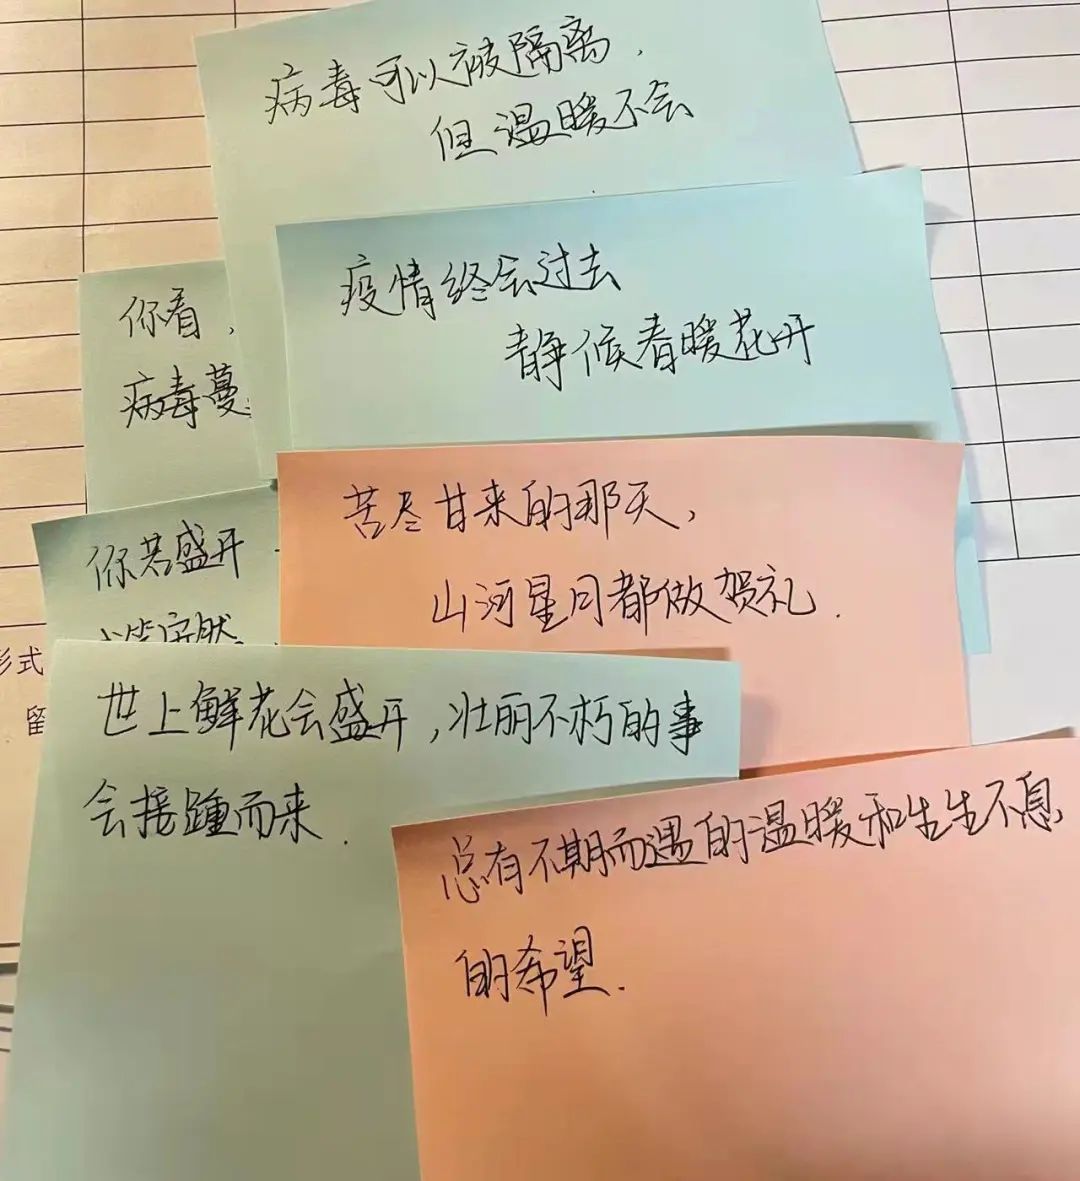 病毒可以被隔离，
但温暖不会
疫情终会过去
静候春暖花开
你看，
病毒蔓
苦尽甘来的那天，
山河星月都做贺礼.
你若盛开
形式
留
世上鲜花会盛开，壮丽不朽的事
会接踵而来.
总有不期而遇的温暖和生生不息
的希望.